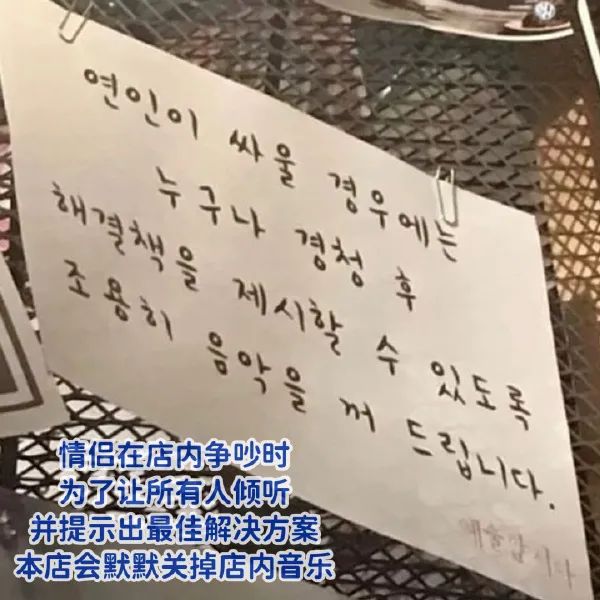 연인이 싸울 경우에는
누구나 경청 후
해결책을 제시할 수 있도록
조용히 음악을 꺼 드립니다.
情侣在店内争吵时
为了让所有人倾听
并提示出最佳解决方案
本店会默默关掉店内音乐